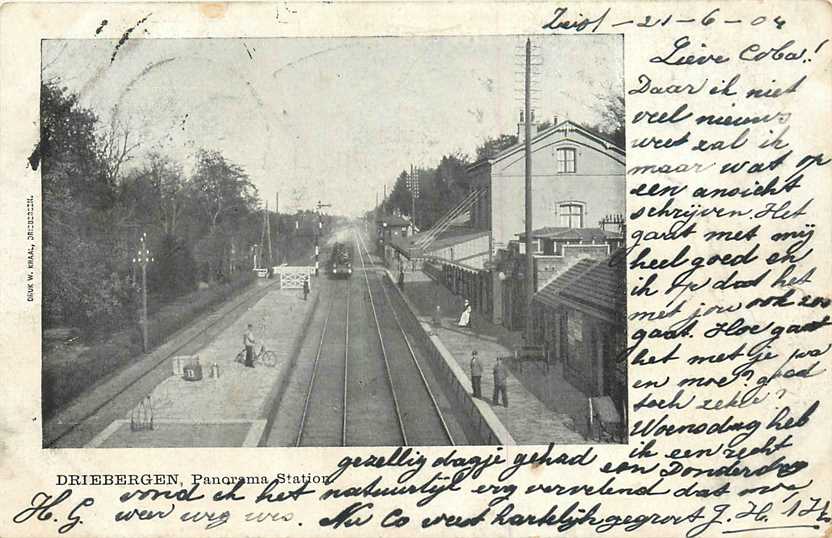 Zeist - 21 - 6 - 04
Lieve Coba!!
Daar ik niet
veel nieuws
weet zal ik
maar wat op
een ansicht
schrijven. Het
gaat met mij
heel goed en
ik op dat het
met jou ook zoo
gaat. Hoe gaat
het met je pa
en moe? goed
toch zeker?
Woensdag heb
ik een zecht
gezellig dagje gehad
en Donderdag
vond ik het natuurlijk erg vervelend dat
weer weg was. Nu Co weest hartelijk gegroet J. H.
H. G.
DRIEBERGEN, Panorama Station.
DRUK W. KRAAL, DRIEBERGEN.